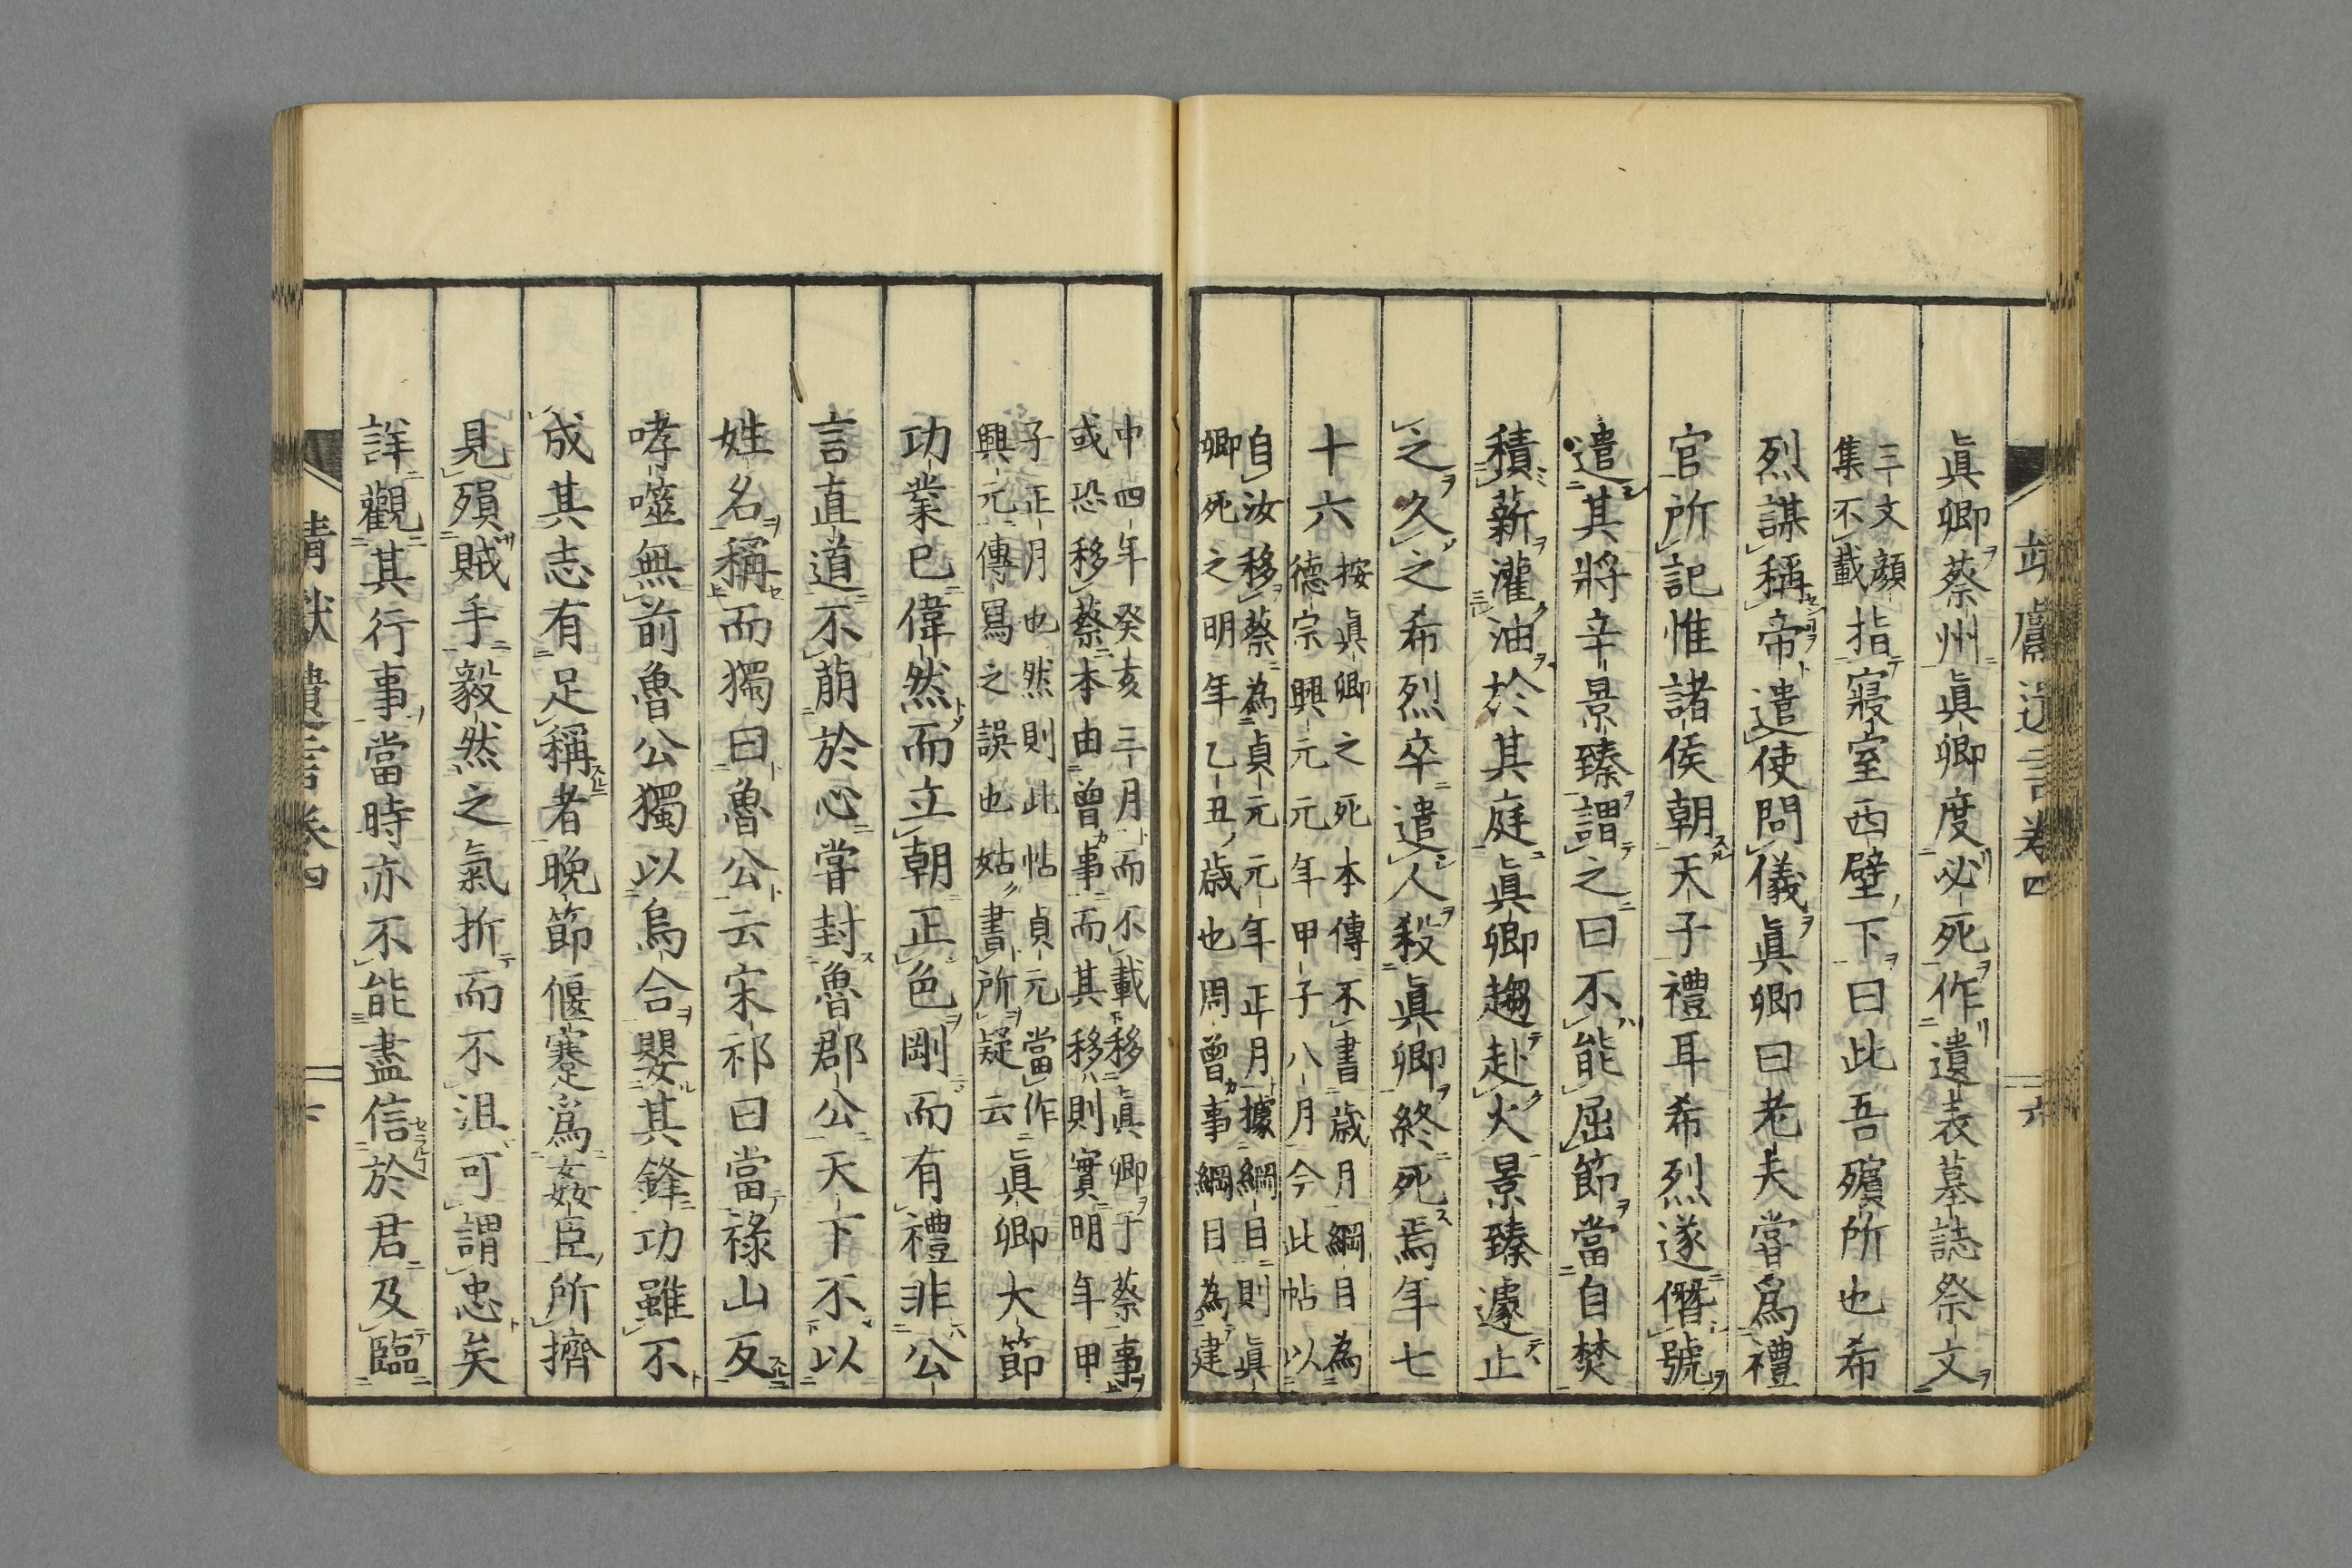 靖獻遺言卷四
六
眞卿蔡州眞卿度必死作遺表墓誌祭文
三文顏
集不載
指寢室西壁下曰此吾殯所也希
烈謀稱帝遣使問儀眞卿曰老夫嘗爲禮
官所記惟諸侯朝天子禮耳希烈遂僭號
遣其將辛景臻謂之曰不能屈節當自焚
積薪灌油於其庭眞卿趨赴火景臻遽止
之久之希烈卒遣人殺眞卿終死焉年七
十六
按眞卿之死本傳不書歳月綱目為
德宗興元元年甲子八月今此帖以
自汝移蔡為貞元元年正月據綱目則眞
卿死之明年乙丑歳也周曾事綱目為建
中四年癸亥三月而不載移眞卿于蔡事
或恐移蔡本由曾事而其移則實明年甲
子正月也然則此帖貞元當作
興元傳寫之誤也姑書所疑云
眞卿大節
功業已偉然而立朝正色剛而有禮非公
言直道不萠於心嘗封魯郡公天下不以
姓名稱而獨曰魯公云宋祁曰當祿山反
哮噬無前魯公獨以烏合嬰其鋒功雖不
成其志有足稱者晩節偃蹇爲姦臣所擠
見殞賊手毅然之氣折而不沮可謂忠矣
詳觀其行事當時亦不能盡信於君及臨
靖獻遺言卷四